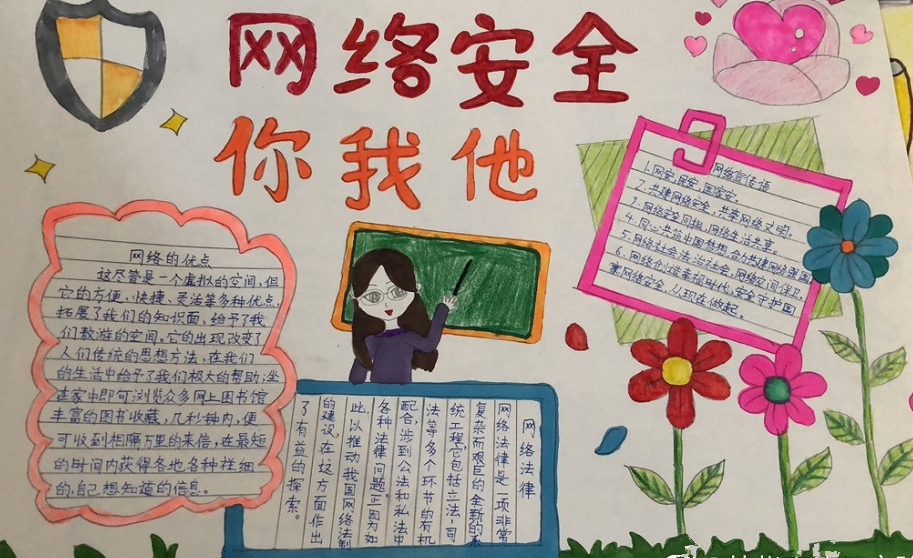 网络安全
你我他
网络的优点
这尽管是一个虚拟的空间,但
它的方便、快捷、灵活等多种优点,
拓展了我们的知识面,给予了我
们遨游的空间。它的出现改变了
人们传统的思想方法,在我们
的生活中给予了我们极大的帮助,坐
在家中即可浏览众多网上图书馆
丰富的图书收藏,几秒钟内,便
可收到相隔万里的来信,在最短
的时间内获得各地各种祥细
的,自己想知道的信息。
网络宣传语
1.网安,民安,国家安。
2.共建网络安全,共享网络文明。
4.同心共筑中国梦想,合力共建网络强国
5.网络社会法治社会,网络空间保卫。
6.网络创造幸福时代,安全守护国
家网络安全,从现在做起。
网络法律
网络法律是一项非常
复杂而艰巨的全新的系
统工程,它包括立法,司
法等多个环节的有机
配合,涉到公法和私法中
各种法律问题。正因为如
此,以推动我国网络法制
的建设,在这方面作出
了有益的探索。